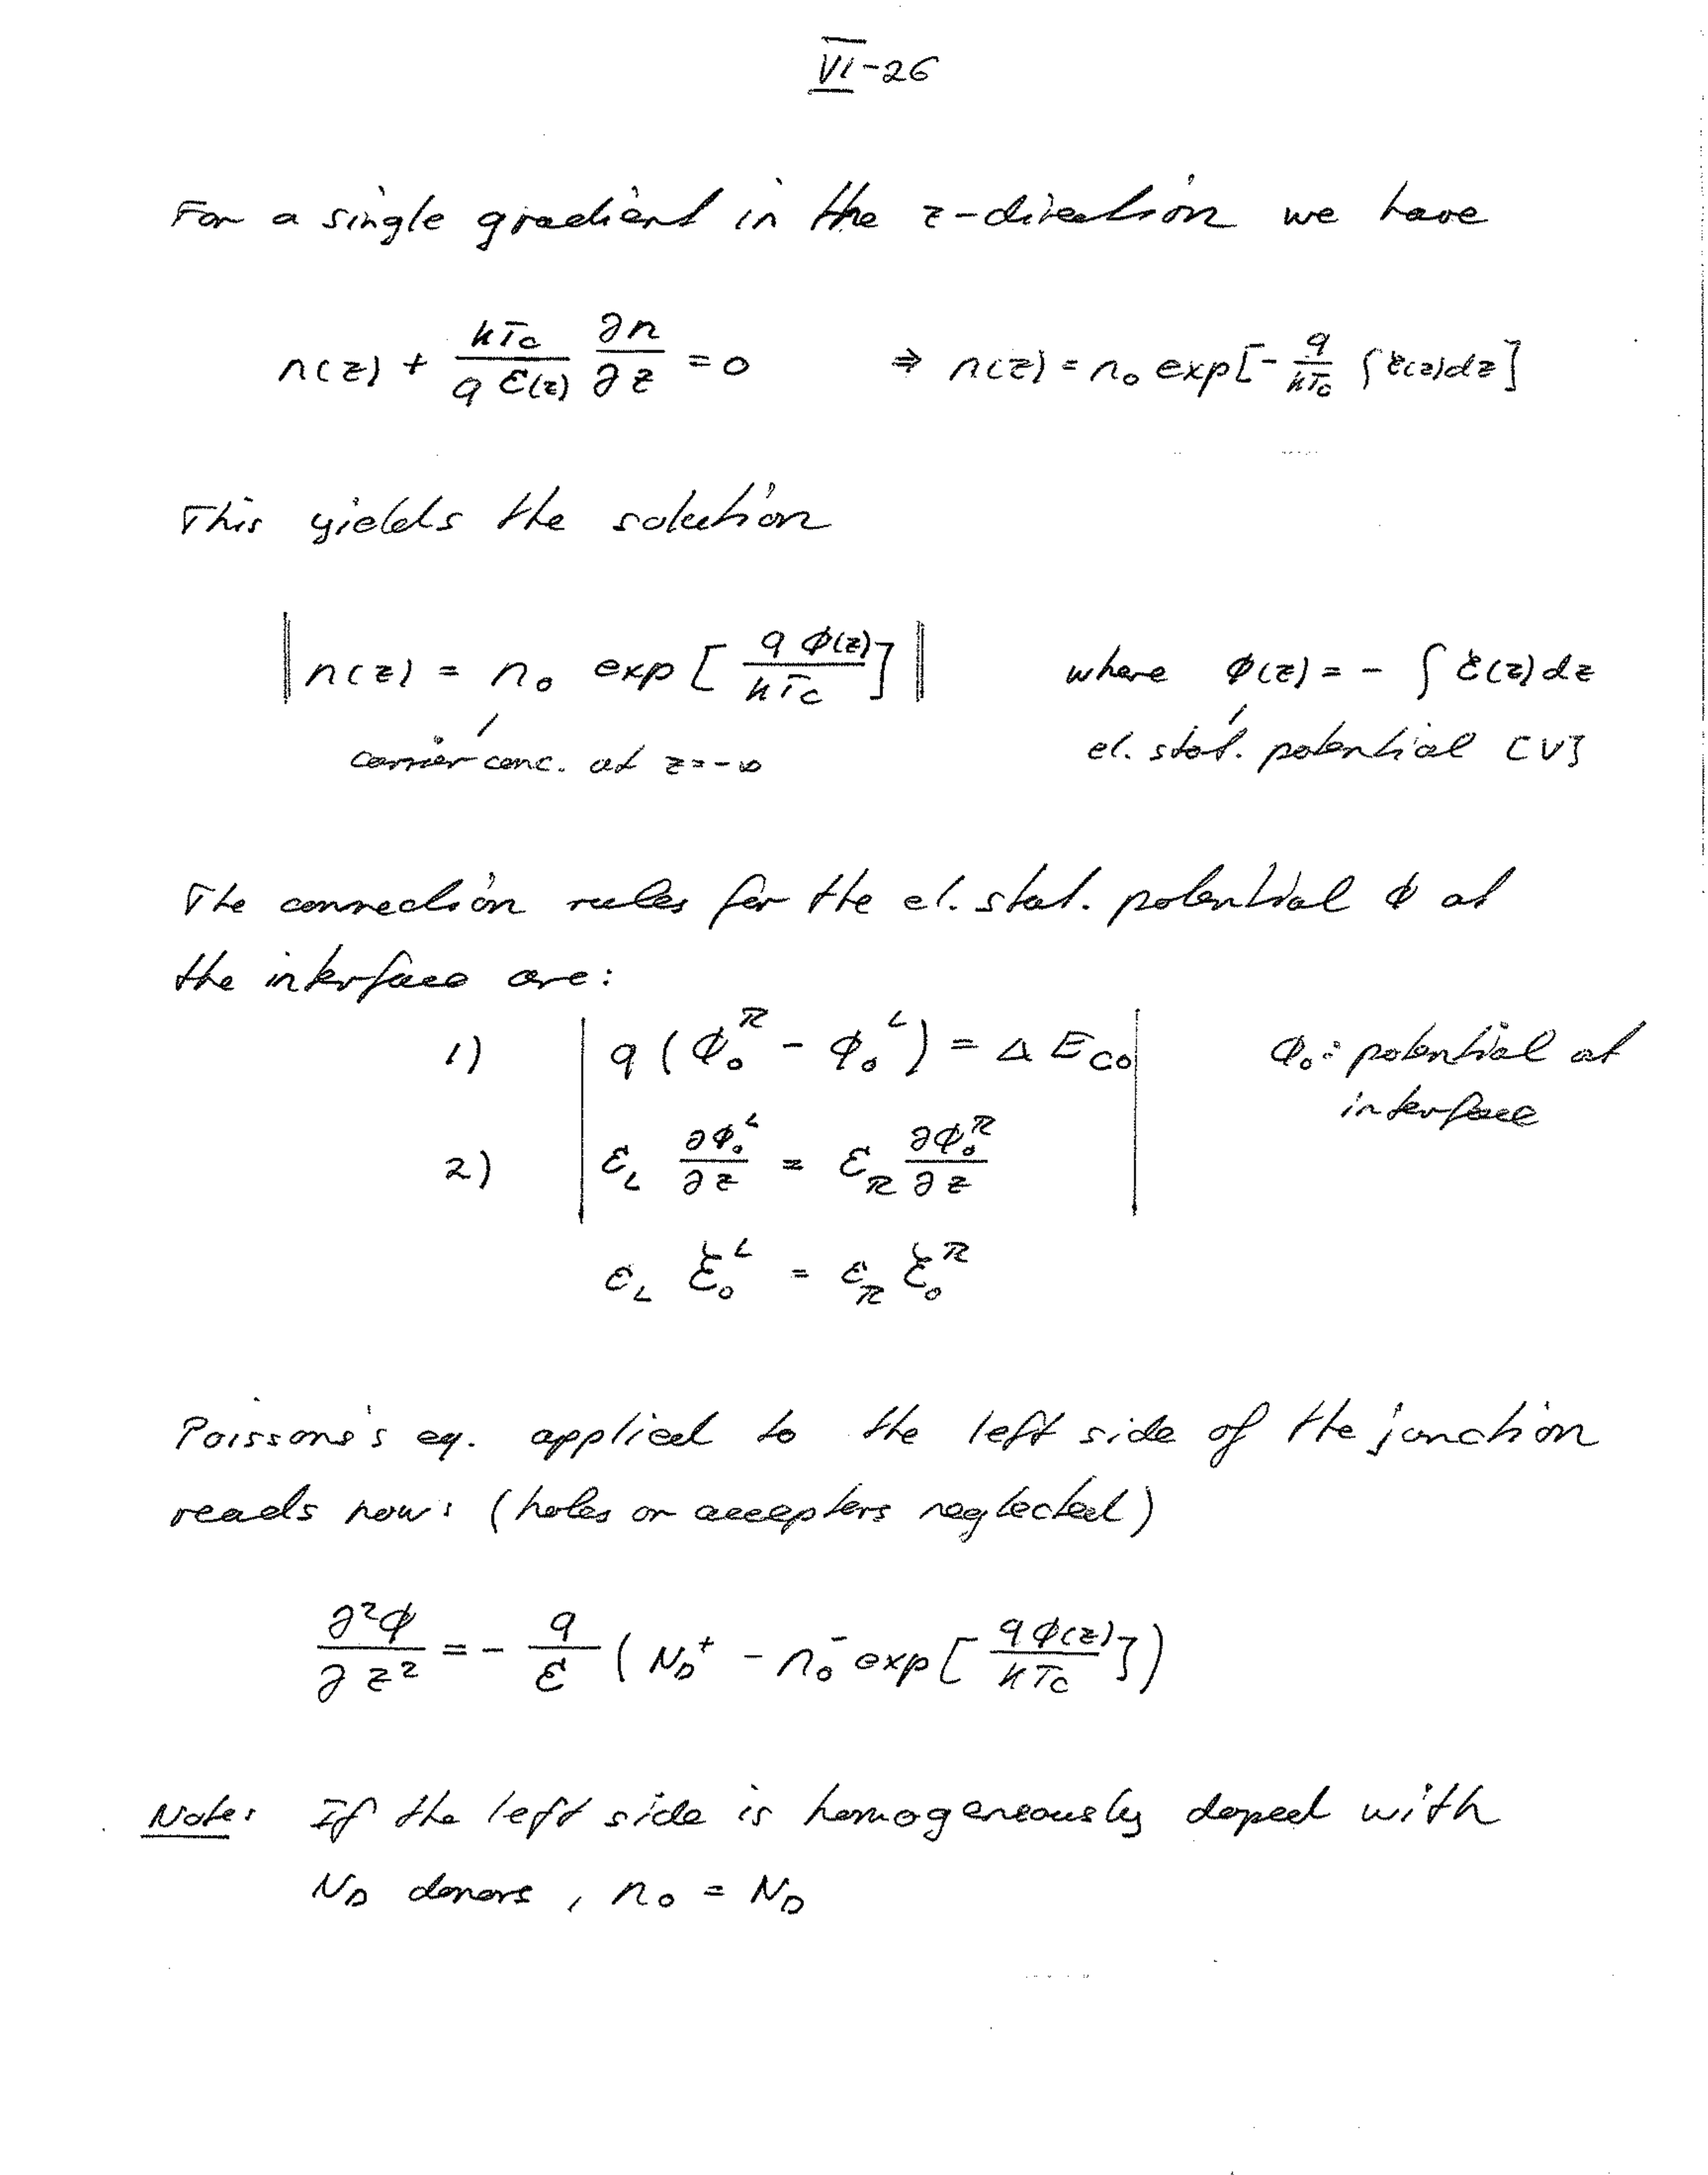 VI-26
For a single gradient in the z-direction we have
n(z) + kTc/(q ℰ(z)) ∂n/∂z = 0 ⇒ n(z) = n₀ exp[- q/kTc ∫ℰ(z)dz]
This yields the solution
‖ n(z) = n₀ exp[ qφ(z)/kTc ] ‖ where φ(z) = - ∫ ℰ(z)dz
carrier conc. at z=-∞ el. stat. potential [V]
The connection rules for the el. stat. potential φ at
the interface are:
1) q(φ₀ᴿ - φ₀ᴸ) = Δ E_C0 φ₀: potential at
interface
2) ε_L ∂φ₀ᴸ/∂z = ε_R ∂φ₀ᴿ/∂z
ε_L ℰ₀ᴸ = ε_R ℰ₀ᴿ
Poissons's eq. applied to the left side of the junction
reads now: (holes or accepters neglected)
∂²φ/∂z² = - q/ε ( N_D⁺ - n₀⁻ exp[ qφ(z)/kTc ])
Note: If the left side is homogeneously doped with
N_D donors, n₀ = N_D